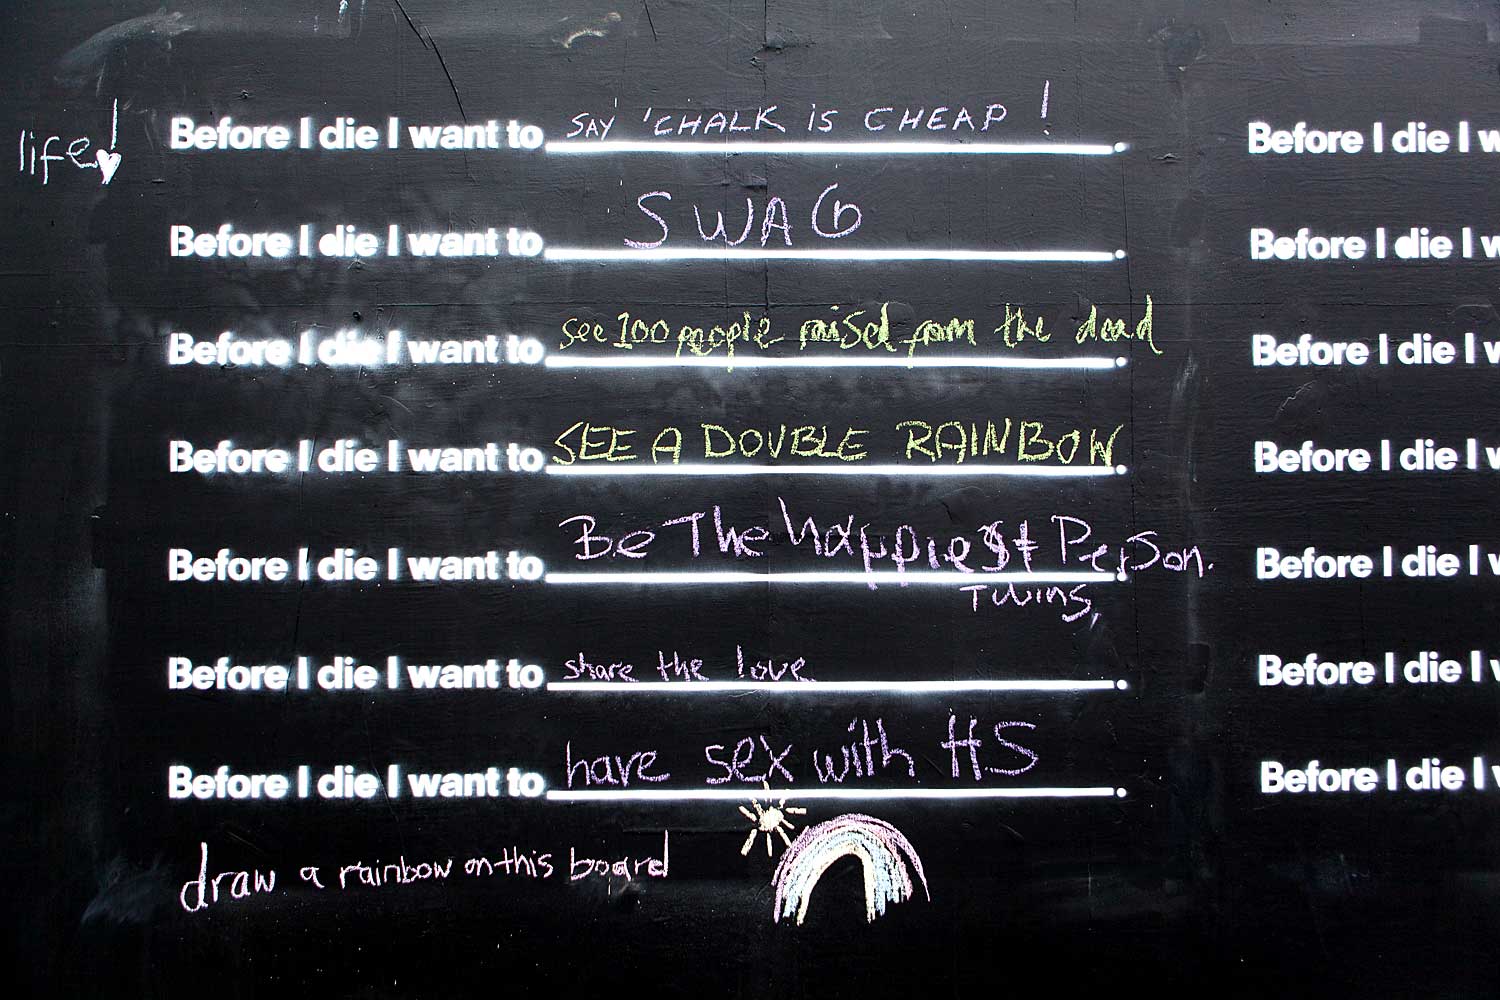 life!
Before I die I want to SAY 'CHALK IS CHEAP!
Before I die I want to SWAG
Before I die I want to see 100 people raised from the dead
Before I die I want to SEE A DOUBLE RAINBOW
Before I die I want to Be The happiest Person.
Twins,
Before I die I want to share the love
Before I die I want to have sex with H.S
draw a rainbow on this board
Before I die I w
Before I die I w
Before I die I w
Before I die I w
Before I die I w
Before I die I w
Before I die I w